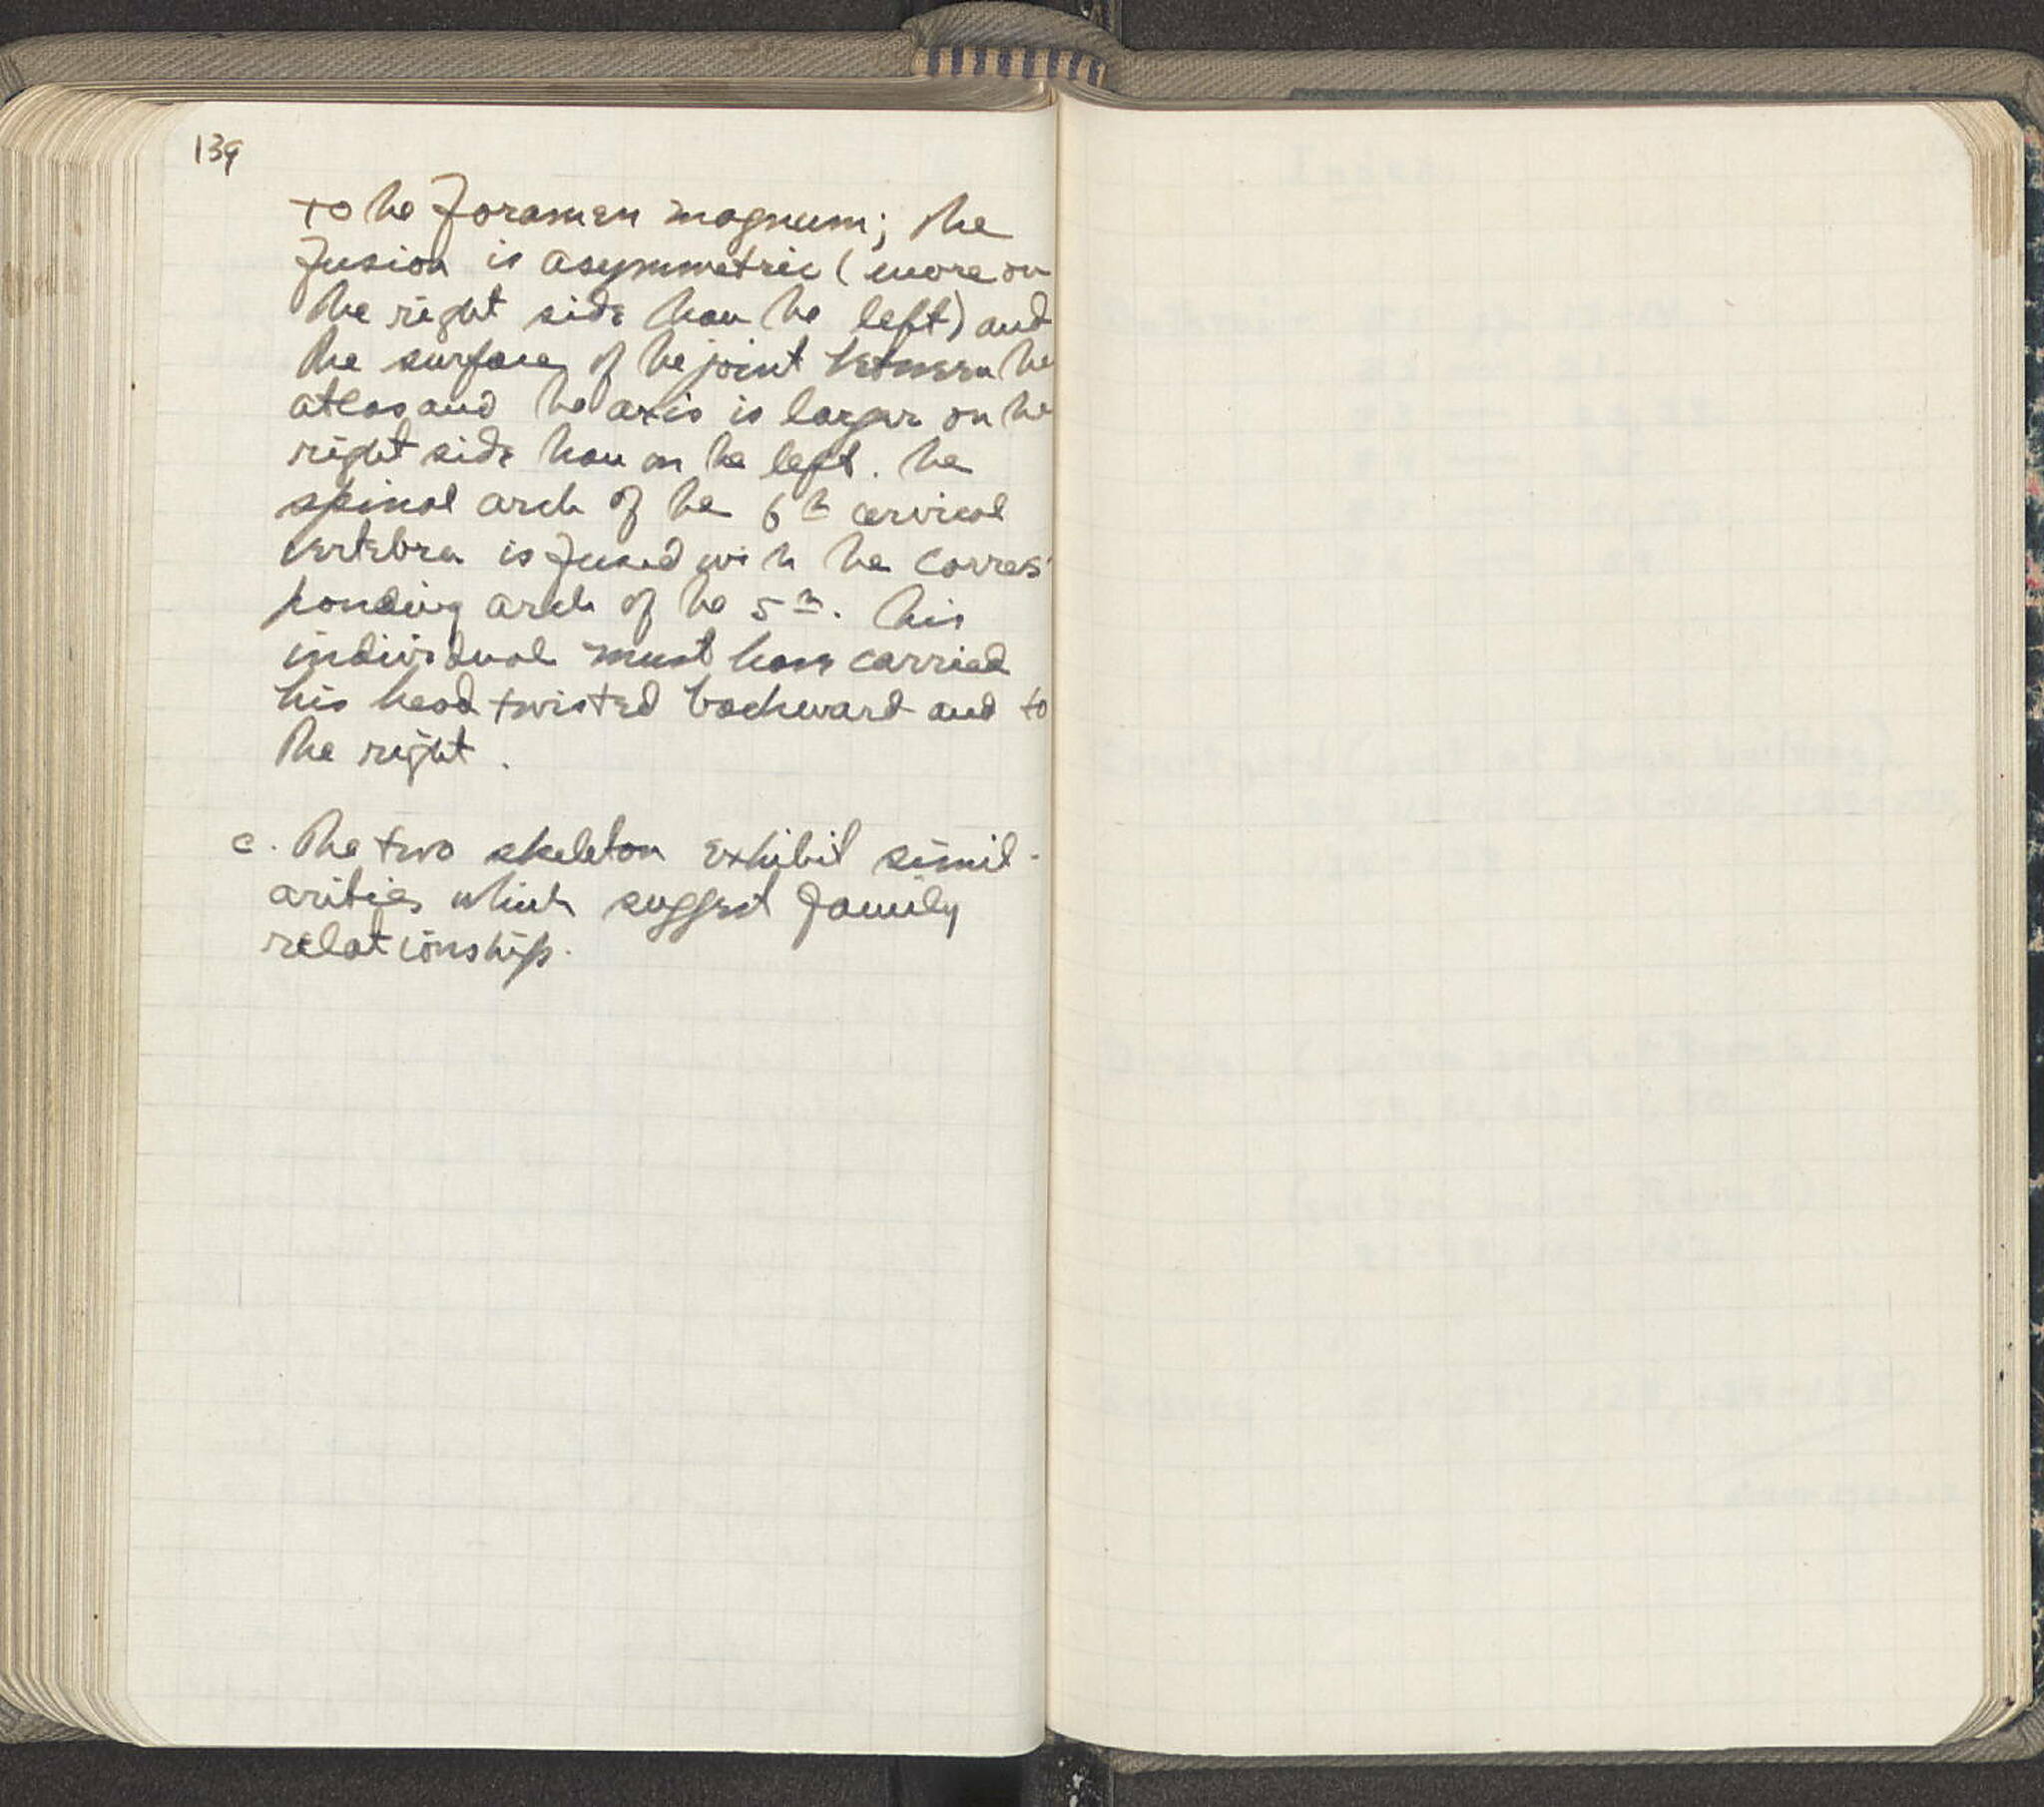 139
to the foramen magnum; the
fusion is asymmetric (more on
the right side than the left) and
the surface of the joint between the
atlas and the axis is larger on the
right side than on the left. The
spinal arch of the 6th cervical
vertebra is fused with the corres-
ponding arch of the 5th. This
individual must have carried
his head twisted backward and to
the right.
c. The two skeleton exhibit simil-
arities which suggest family
relationship.
Index